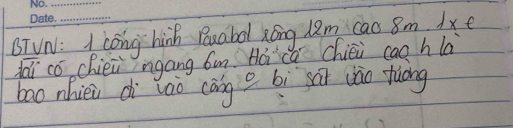 No.
Date.
BTVN: 1 cổng hình Parabol rộng 12m cao 8m 1 xe
tải có chiều ngang 6m. Hỏi cả chiều cao h là
bao nhiêu đi vào cổng ko bị sát vào tường